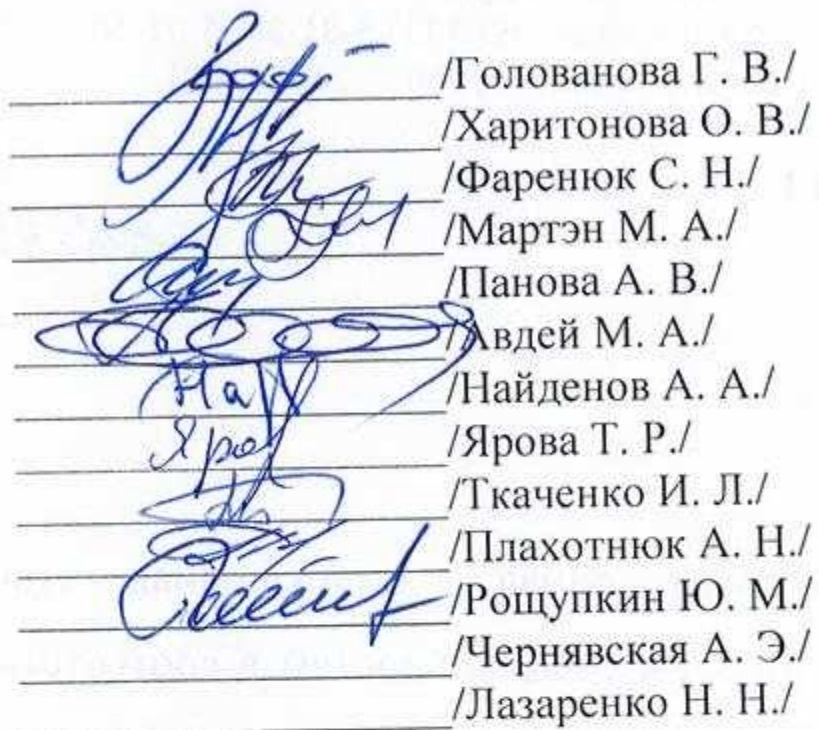 /Голованова Г. В./
/Харитонова О. В./
/Фаренюк С. Н./
/Мартэн М. А./
/Панова А. В./
/Авдей М. А./
/Найденов А. А./
/Ярова Т. Р./
/Ткаченко И. Л./
/Плахотнюк А. Н./
/Рощупкин Ю. М./
/Чернявская А. Э./
/Лазаренко Н. Н./